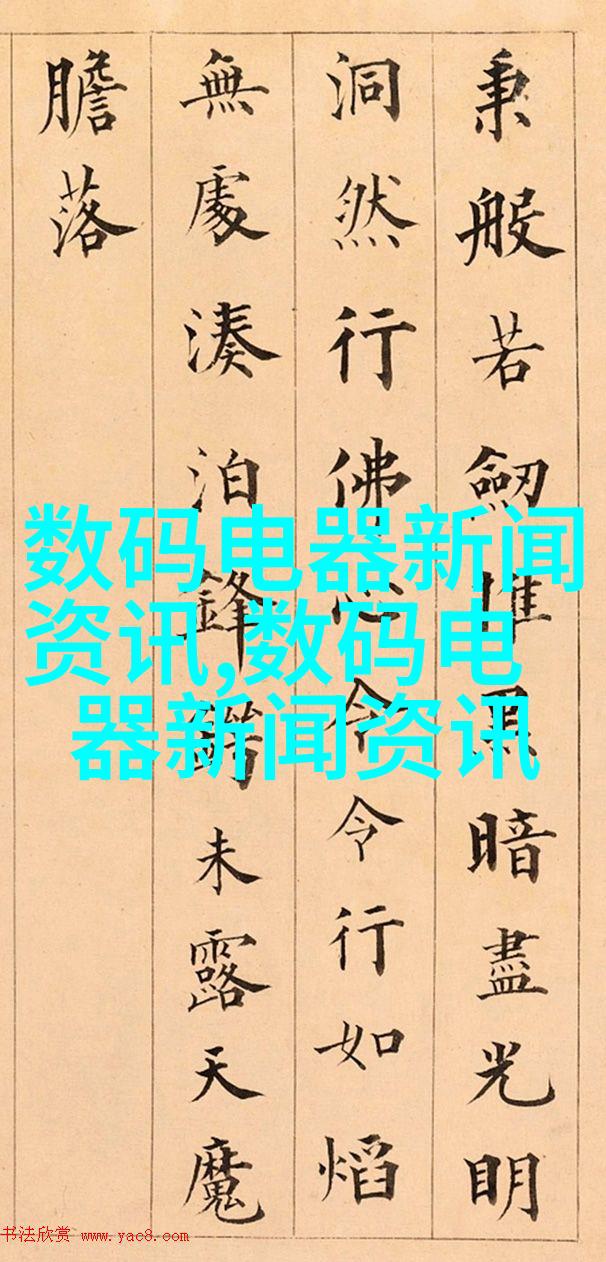 秉般若劔摧黑暗盡光明
洞然行佛心令令行如熖
無處湊泊鋒鍔未露天魔
膽落
数码电器新闻
资讯,数码电
器新闻资讯
书法欣赏 www.yac8.com